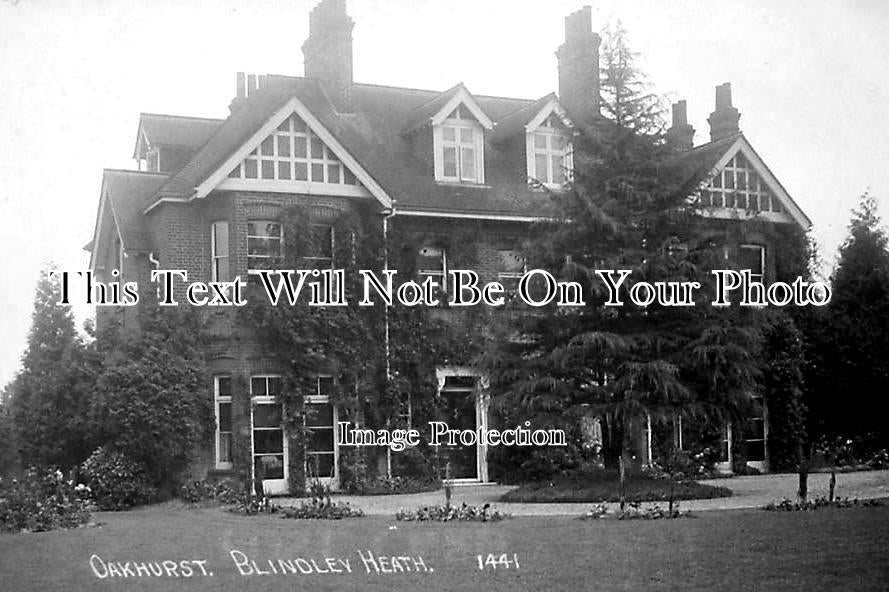 This Text Will Not Be On Your Photo
Image Protection
OAKHURST. BLINDLEY HEATH. 1441